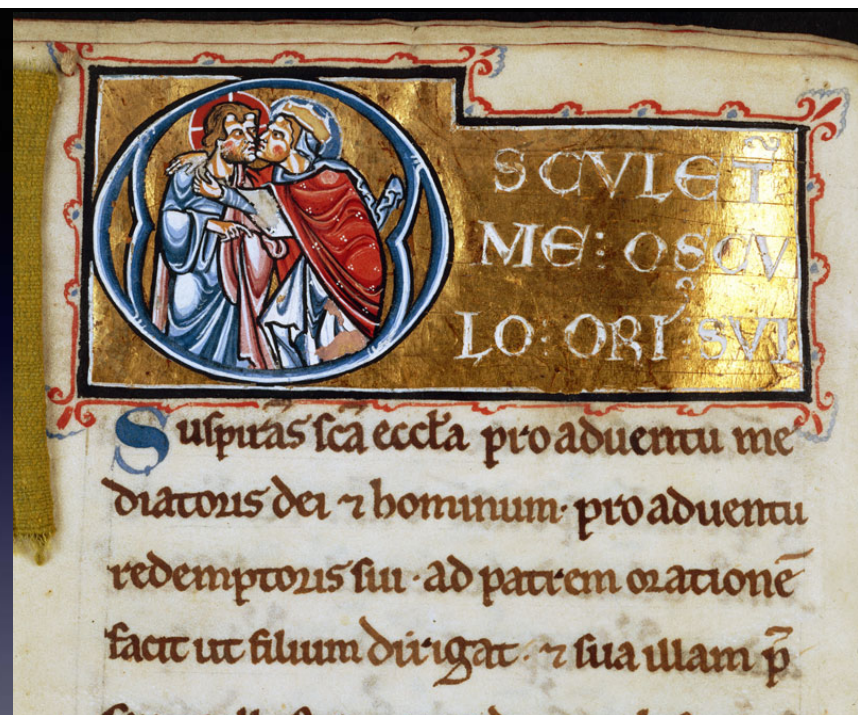 OSCVLET̃
ME: OSCV
LO: ORIˢ SVI
Suspiras sc̄a eccl̄a pro aduentu me
diatoris dei ⁊ hominum· pro aduentu
redemptoris sui · ad patrem orationē
facit ut filium dirigat · ⁊ sua illam p̄